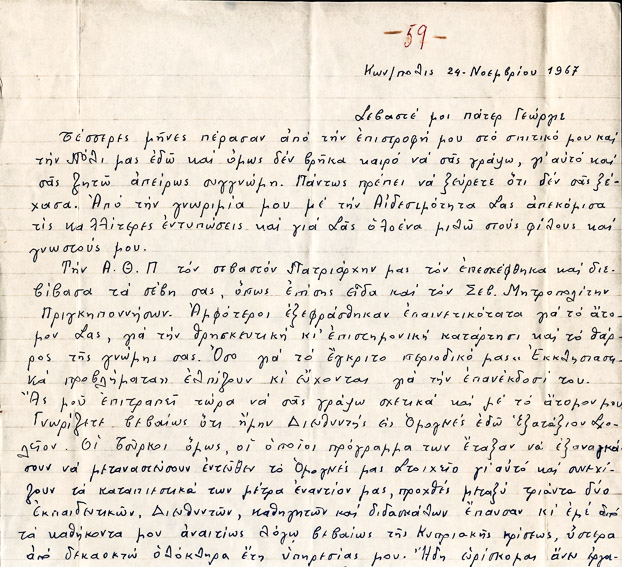 -59-
Κων/πολις 24-Νοεμβρίου 1967
Σεβαστέ μοι πάτερ Γεώργιε
Τέσσερες μῆνες πέρασαν ἀπό τήν ἐπιστροφή μου στό σπιτικό μου καί
τήν Πόλι μας ἐδῶ καί ὅμως δέν βρῆκα καιρό νά σᾶς γράψω, γι' αὐτό καί
σᾶς ζητῶ ἀπείρως συγγνώμη. Πάντως πρέπει νά ξεύρετε ὅτι δέν σᾶς ξέ-
χασα. Ἀπό τήν γνωριμία μου μέ τήν Αἰδεσιμότητα Σας ἀπεκόμισα
τίς καλλίτερες ἐντυπώσεις καί γιά Σᾶς ὁλοένα μιλῶ στούς φίλους καί
γνωστούς μου.
Τήν Α.Θ.Π τόν σεβαστόν Πατριάρχην μας τόν ἐπεσκέφθηκα καί διε-
βίβασα τά σέβη σας, ὅπως ἐπίσης εἶδα καί τόν Σεβ. Μητροπολίτην
Πριγκηποννήσων. Ἀμφότεροι ἐξεφράσθηκαν ἐπαινετικότατα γιά τό ἄτο-
μον Σας, γιά τήν θρησκευτική κι' ἐπιστημονική κατάρτησι καί τό θάρ-
ρος τῆς γνώμης σας. Ὅσο γιά τό ἔγκριτο περιοδικό μας "Ἐκκλησιαστι-
κά προβλήματα" ἐλπίζουν κι' εὔχονται γιά τήν ἐπανέκδοσί του.
Ἄς μοῦ ἐπιτραπεῖ τώρα νά σᾶς γράψω σχετικά καί μέ τό ἄτομον μου
Γνωρίζετε βεβαίως ὅτι ἤμην Διευθυντής εἰς Ὁμογενές ἐδῶ ἑξατάξιον Σχο-
λεῖον. Οἱ Τοῦρκοι ὅμως, οἱ ὁποῖοι πρόγραμμα των ἔταξαν νά ἐξαναγκά-
σουν νά μεταναστεύσουν ἐντεῦθεν τό Ὁμογενές μας Στοιχεῖο γι' αὐτό καί συνεχί-
ζουν τά καταπιεστικά των μέτρα ἐναντίον μας, προχθές μεταξύ τριάντα δύο
Ἐκπαιδευτικῶν, Διευθυντῶν, καθηγητῶν καί διδασκάλων ἔπαυσαν κι' ἐμέ ἀπό
τά καθήκοντα μου ἀναιτίως λόγω βεβαίως τῆς Κυπριακῆς κρίσεως, ὕστερα
ἀπό δεκαοκτώ ὁλόκληρα ἔτη ὑπηρεσίας μου. Ἤδη εὑρίσκομαι ἄνευ ἐργα-